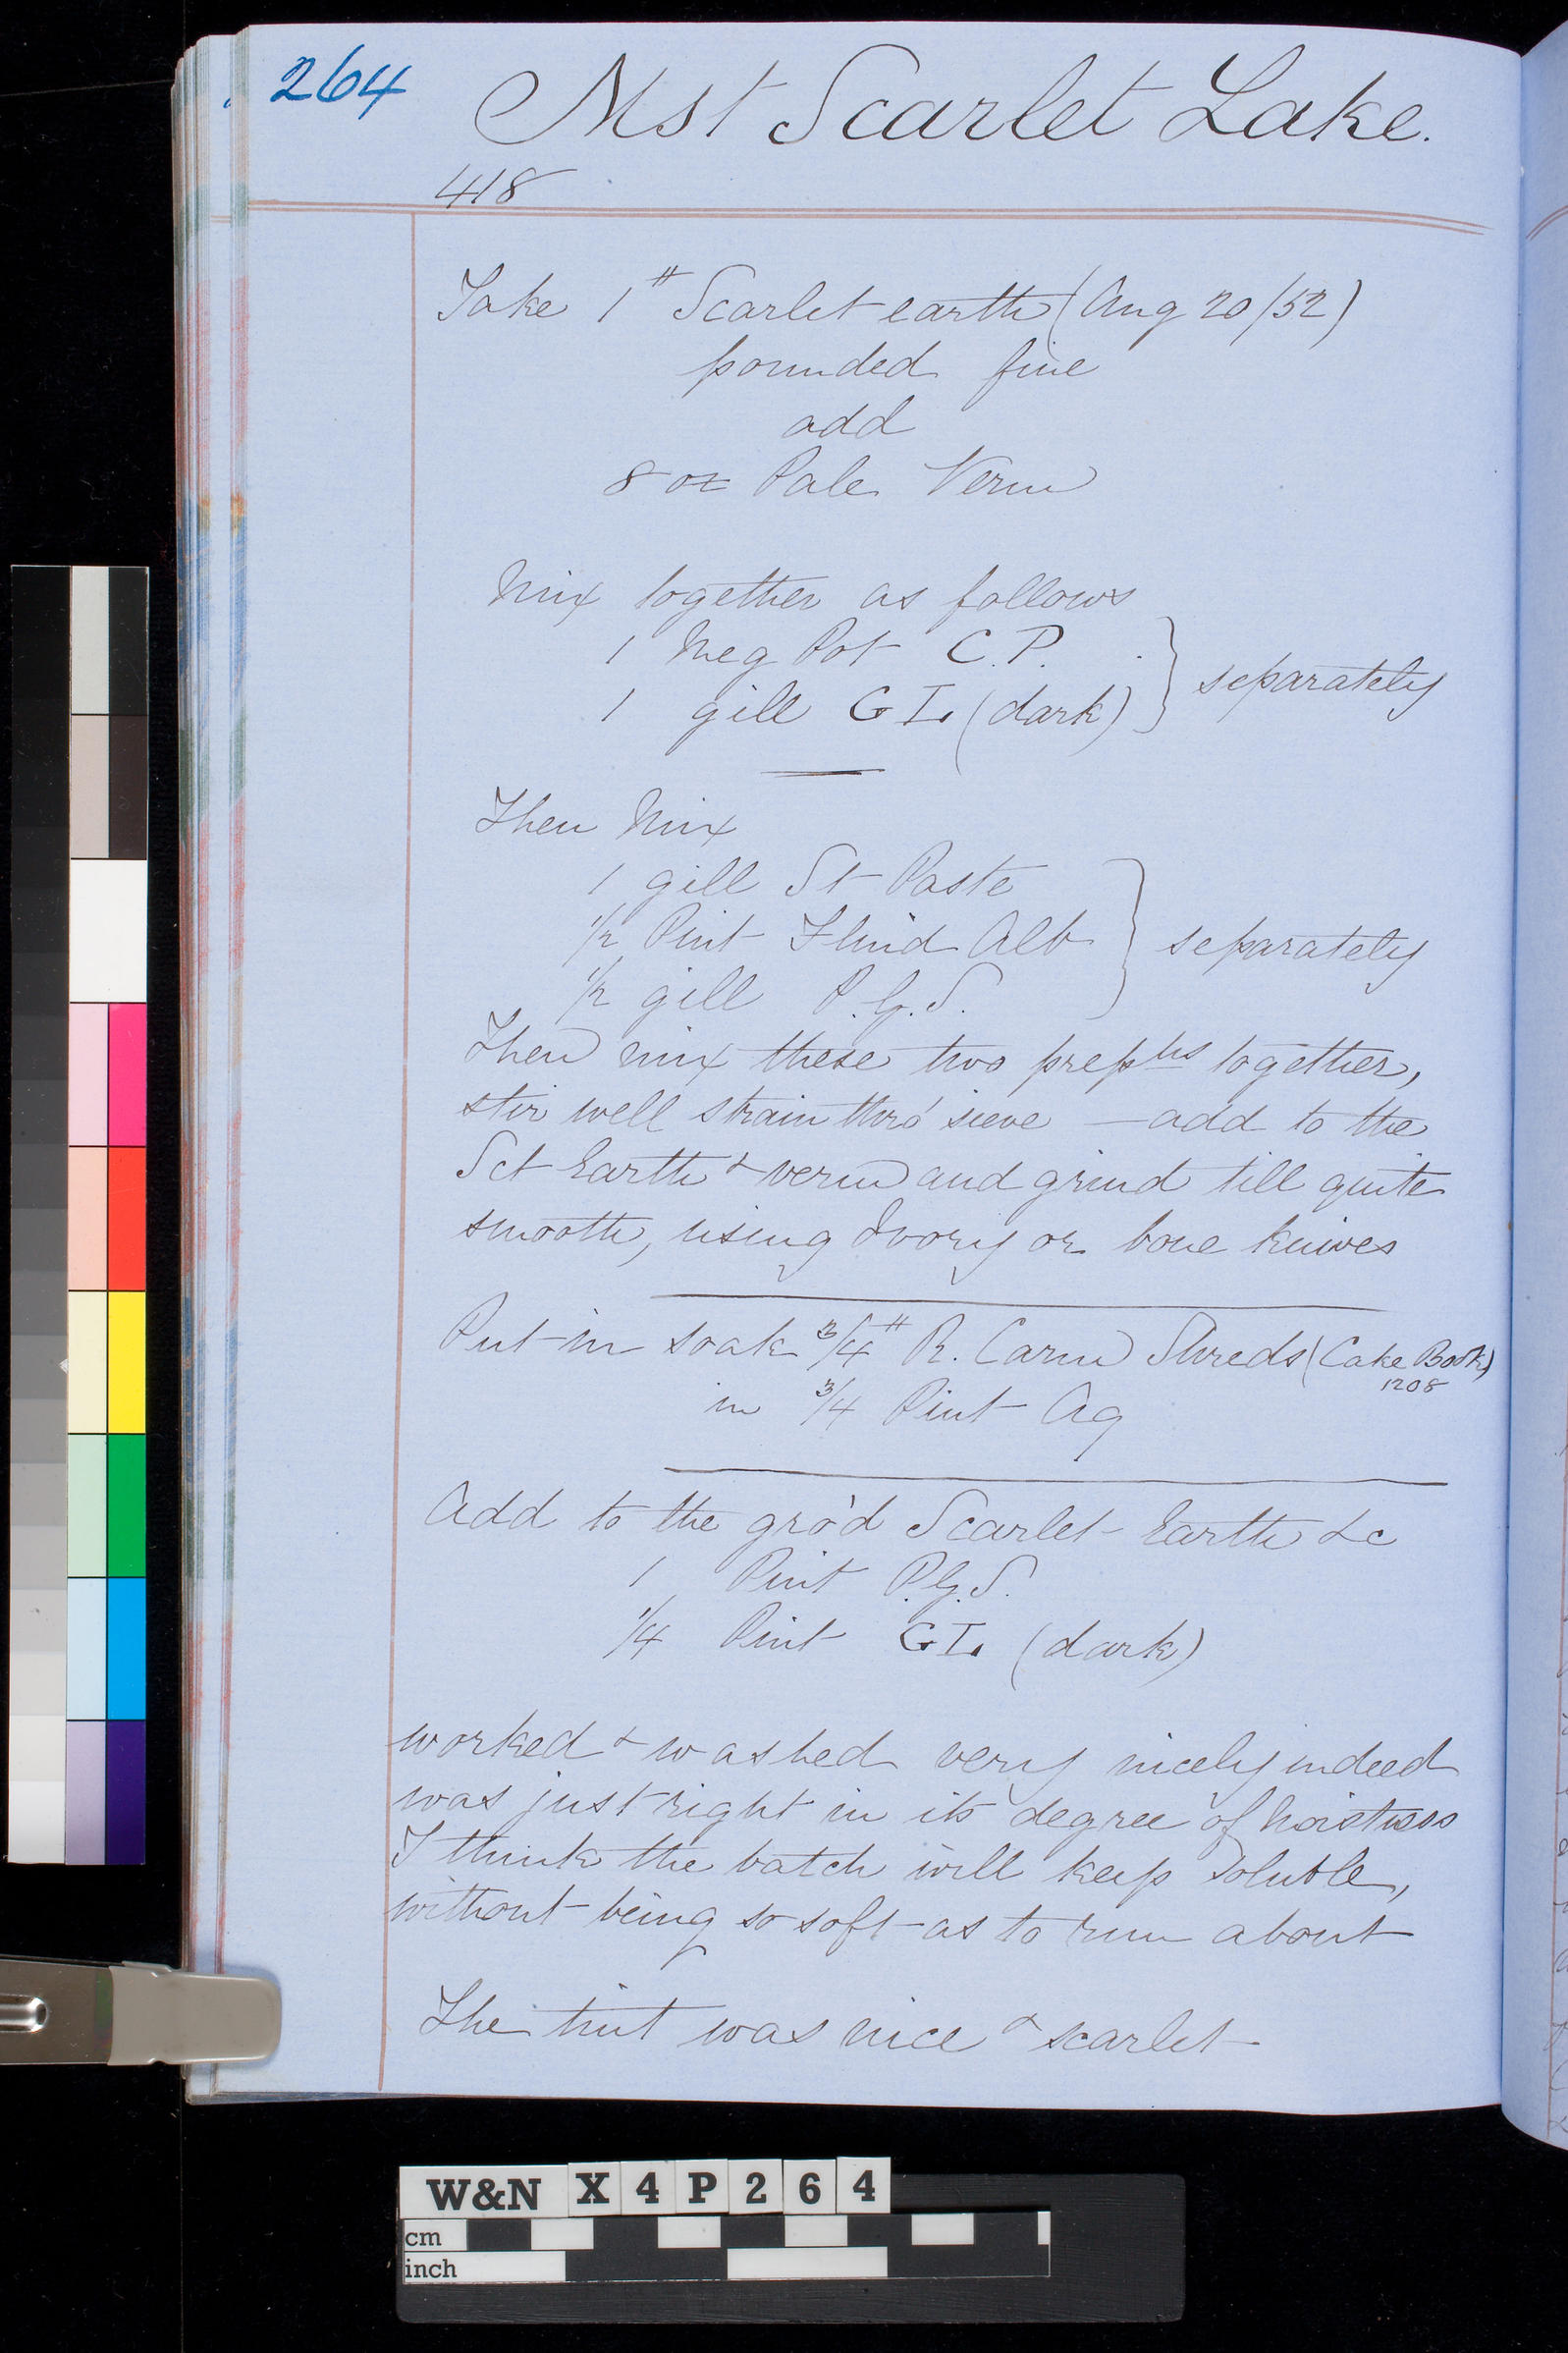 264
Mst Scarlet Lake.
418
Take 1# Scarlet earth (Aug 20/52)
pounded fine
add
8 oz Pale Verm
Mix together as follows
1 Meg Pot C.P.
1 gill GL (dark) } separately
Then Mix
1 gill St Paste
1/2 Pint Fluid Alb } separately
1/2 gill P.G.S.
Then mix these two prepns together,
stir well strain thro' sieve — add to the
Sct Earth & verm and grind till quite
smooth, using Ivory or bone knives
Put in soak 3/4# R. Carm Shreds (Cake Book)
1208
in 3/4 Pint Aq
Add to the gro'd Scarlet Earth &c
1 Pint P.G.S.
1/4 Pint GL (dark)
worked & washed very nicely indeed
was just right in its degree of
I think the batch will keep soluble,
without being so soft as to run about
The tint was nice & scarlet
W&N X4P264
cm
inch